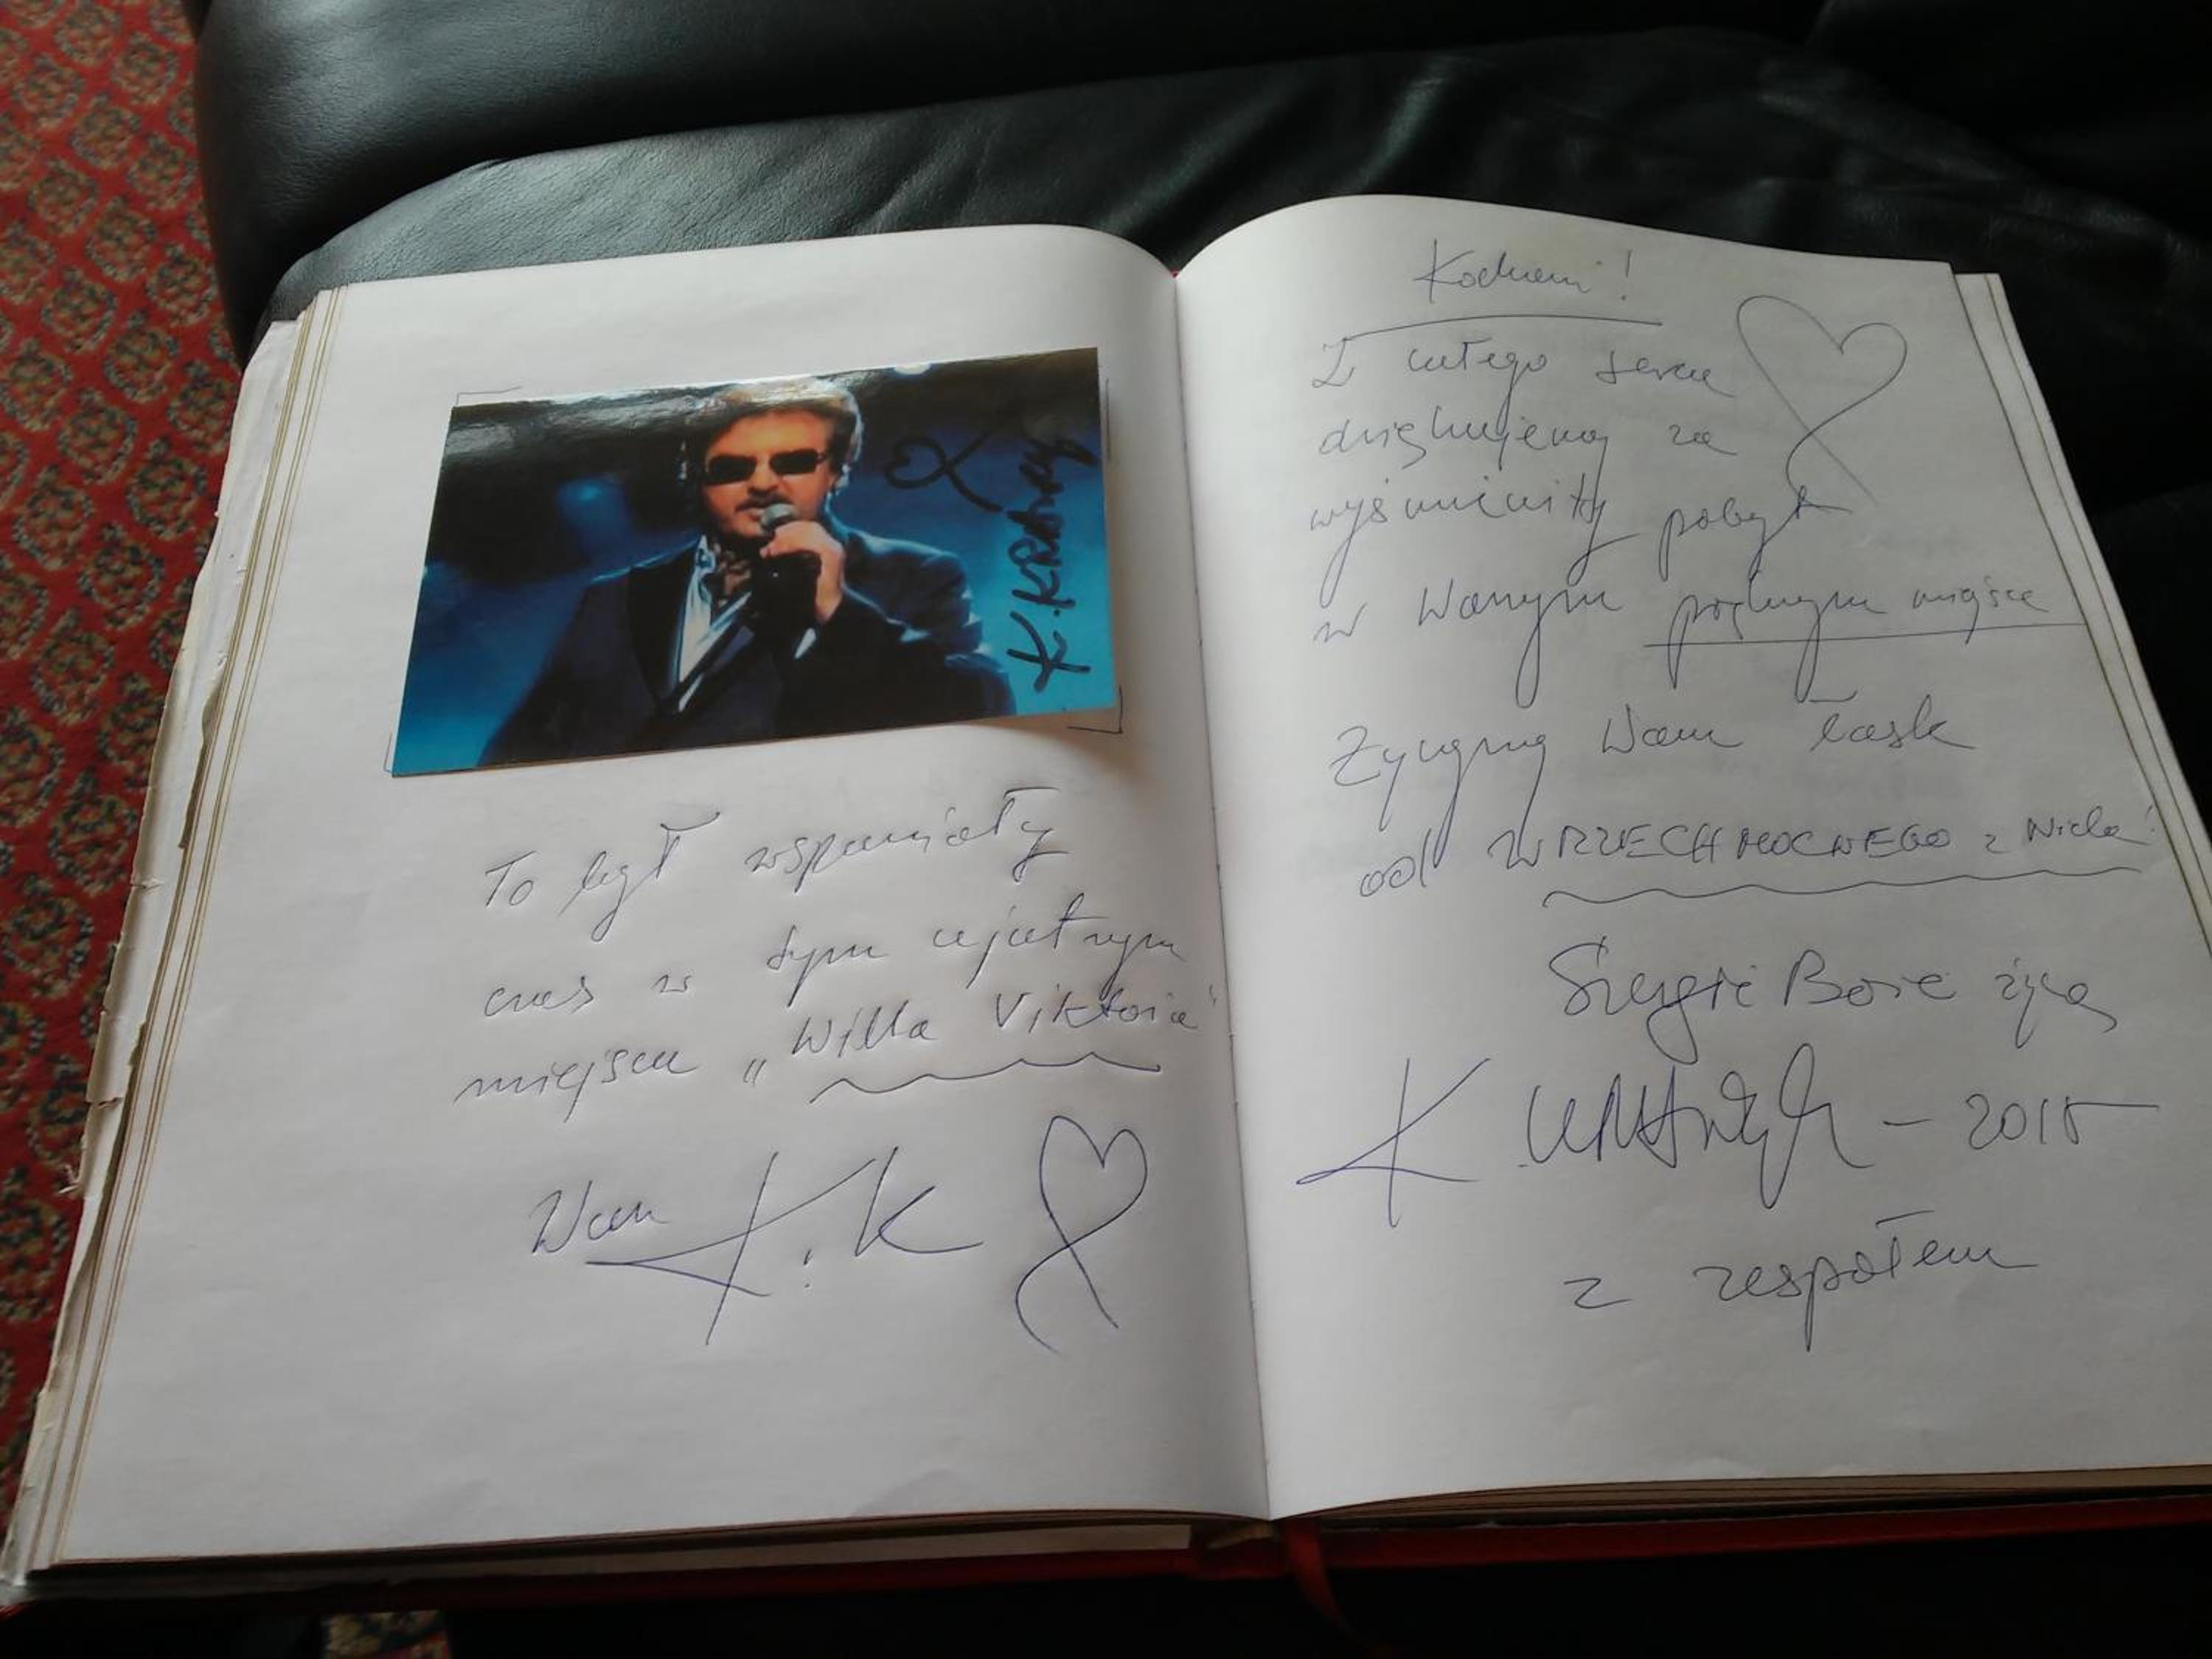 K. KRAWCZYK
To był wspaniały
czas w tym uroczym
miejscu „Willa Viktoria"
Wam K.K
Kochani!
Z całego serca
dziękujemy za
wyśmienity pobyt
w Waszym pięknym miejscu
Życzymy Wam łask
od WSZECHMOCNEGO z Nieba!
Szczęść Boże życzą
K. Krawczyk – 2015
z zespołem